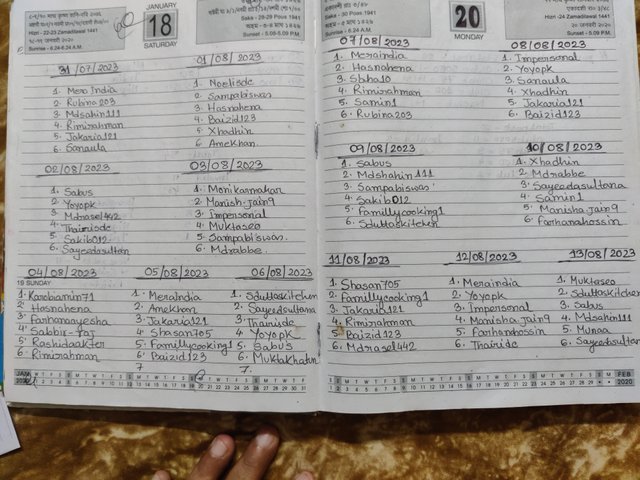 JANUARY
18
SATURDAY
Hizri - 22-23 Zamadilasal 1441
Sunrise - 6.24-6.24 A.M.
Saka - 28-29 Pous 1941
Sunset - 5.09-5.09 P.M.
31/07/2023
1. Mero India
2. Rubina 203
3. Mdsahin111
4. Rimirahman
5. Jakaria121
6. Sanaula
01/08/2023
1. Noelisdc
2. Sampabiswas
3. Hasnahena
4. Baizid123
5. Xhadhin
6. Amekhan.
02/08/2023
1. Sabus
2. Yoyopk
3. Mdrasel442
4. Thairisdc
5. Sakib012
6. Sayeedasultan
03/08/2023
1. Monikarmakar
2. Manish.jain9
3. Impersonal
4. Muktaseo
5. Sampabiswas.
6. Mdrabbe.
04/08/2023
19 SUNDAY
1. Karobiamin71
2. Hasnahena
3. Farhanaayesha
4. Sabbir-faj
5. Rashidaakter
6. Rimirahman
05/08/2023
1. Meraindia
2. Amekhan
3. Jakaria121
4. Shasan705
5. Famillycooking1
6. Baizid123
7
06/08/2023
1. Sduttaskitchen
2. Sayeedsultana
3. Thairisdc
4. Yoyopk
5. Sabus
6. Muktakhatun
7.
JAN
2020
20
MONDAY
Saka - 30 Pous 1941
Hizri - 24 Zamadilasal 1441
Sunset - 5.09 P.M.
07/08/2023
1. Meraindia
2. Hasnahena
3. Shha10
4. Rimirahman
5. Samin1
6. Rubina203
08/08/2023
1. Impersonal
2. Yoyopk
3. Sanaula
4. Xhadhin
5. Jakaria121
6. Baizid123
09/08/2023
1. Sabus
2. Mdshahin111
3. Sampabiswas
4. Sakib012
5. Famillycooking1
6. Sduttaskitchen
10/08/2023
1. Xhadhin
2. Mdrabbe
3. Sayeedasultana
4. Samin1
5. Manisha.jain9
6. Farhanahossin
11/08/2023
1. Shasan705
2. Famillycooking1
3. Jakaria121
4. Rimirahman
5. Baizid123
6. Mdrasel442
12/08/2023
1. Meraindia
2. Yoyopk
3. Impersonal
4. Manisha.jain9
5. Farhanahossin
6. Thairidc
13/08/2023
1. Muktaseo
2. Sduttaskitchen
3. Sabus
4. Mdsahin111
5. Munaa
6. Sayeedasultan
FEB
2020